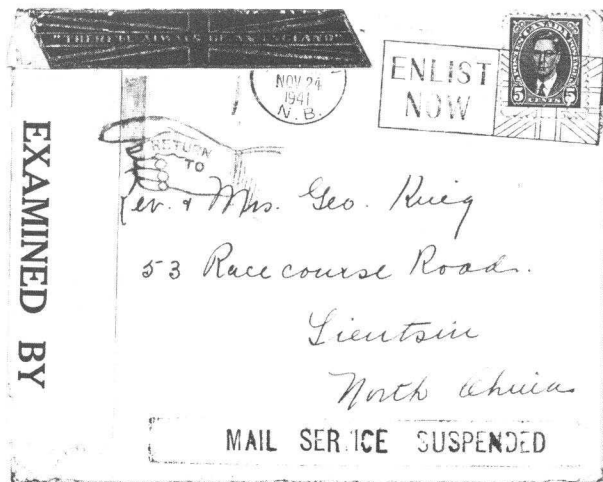 "THERE'LL ALWAYS BE AN ENGLAND"
NOV 24
1941
N.B.
ENLIST
NOW
CANADA
5 CENTS 5
EXAMINED BY
RETURN
TO
Rev. & Mrs. Geo. Krieg
53 Racecourse Road.
Tientsin
North China
MAIL SERVICE SUSPENDED